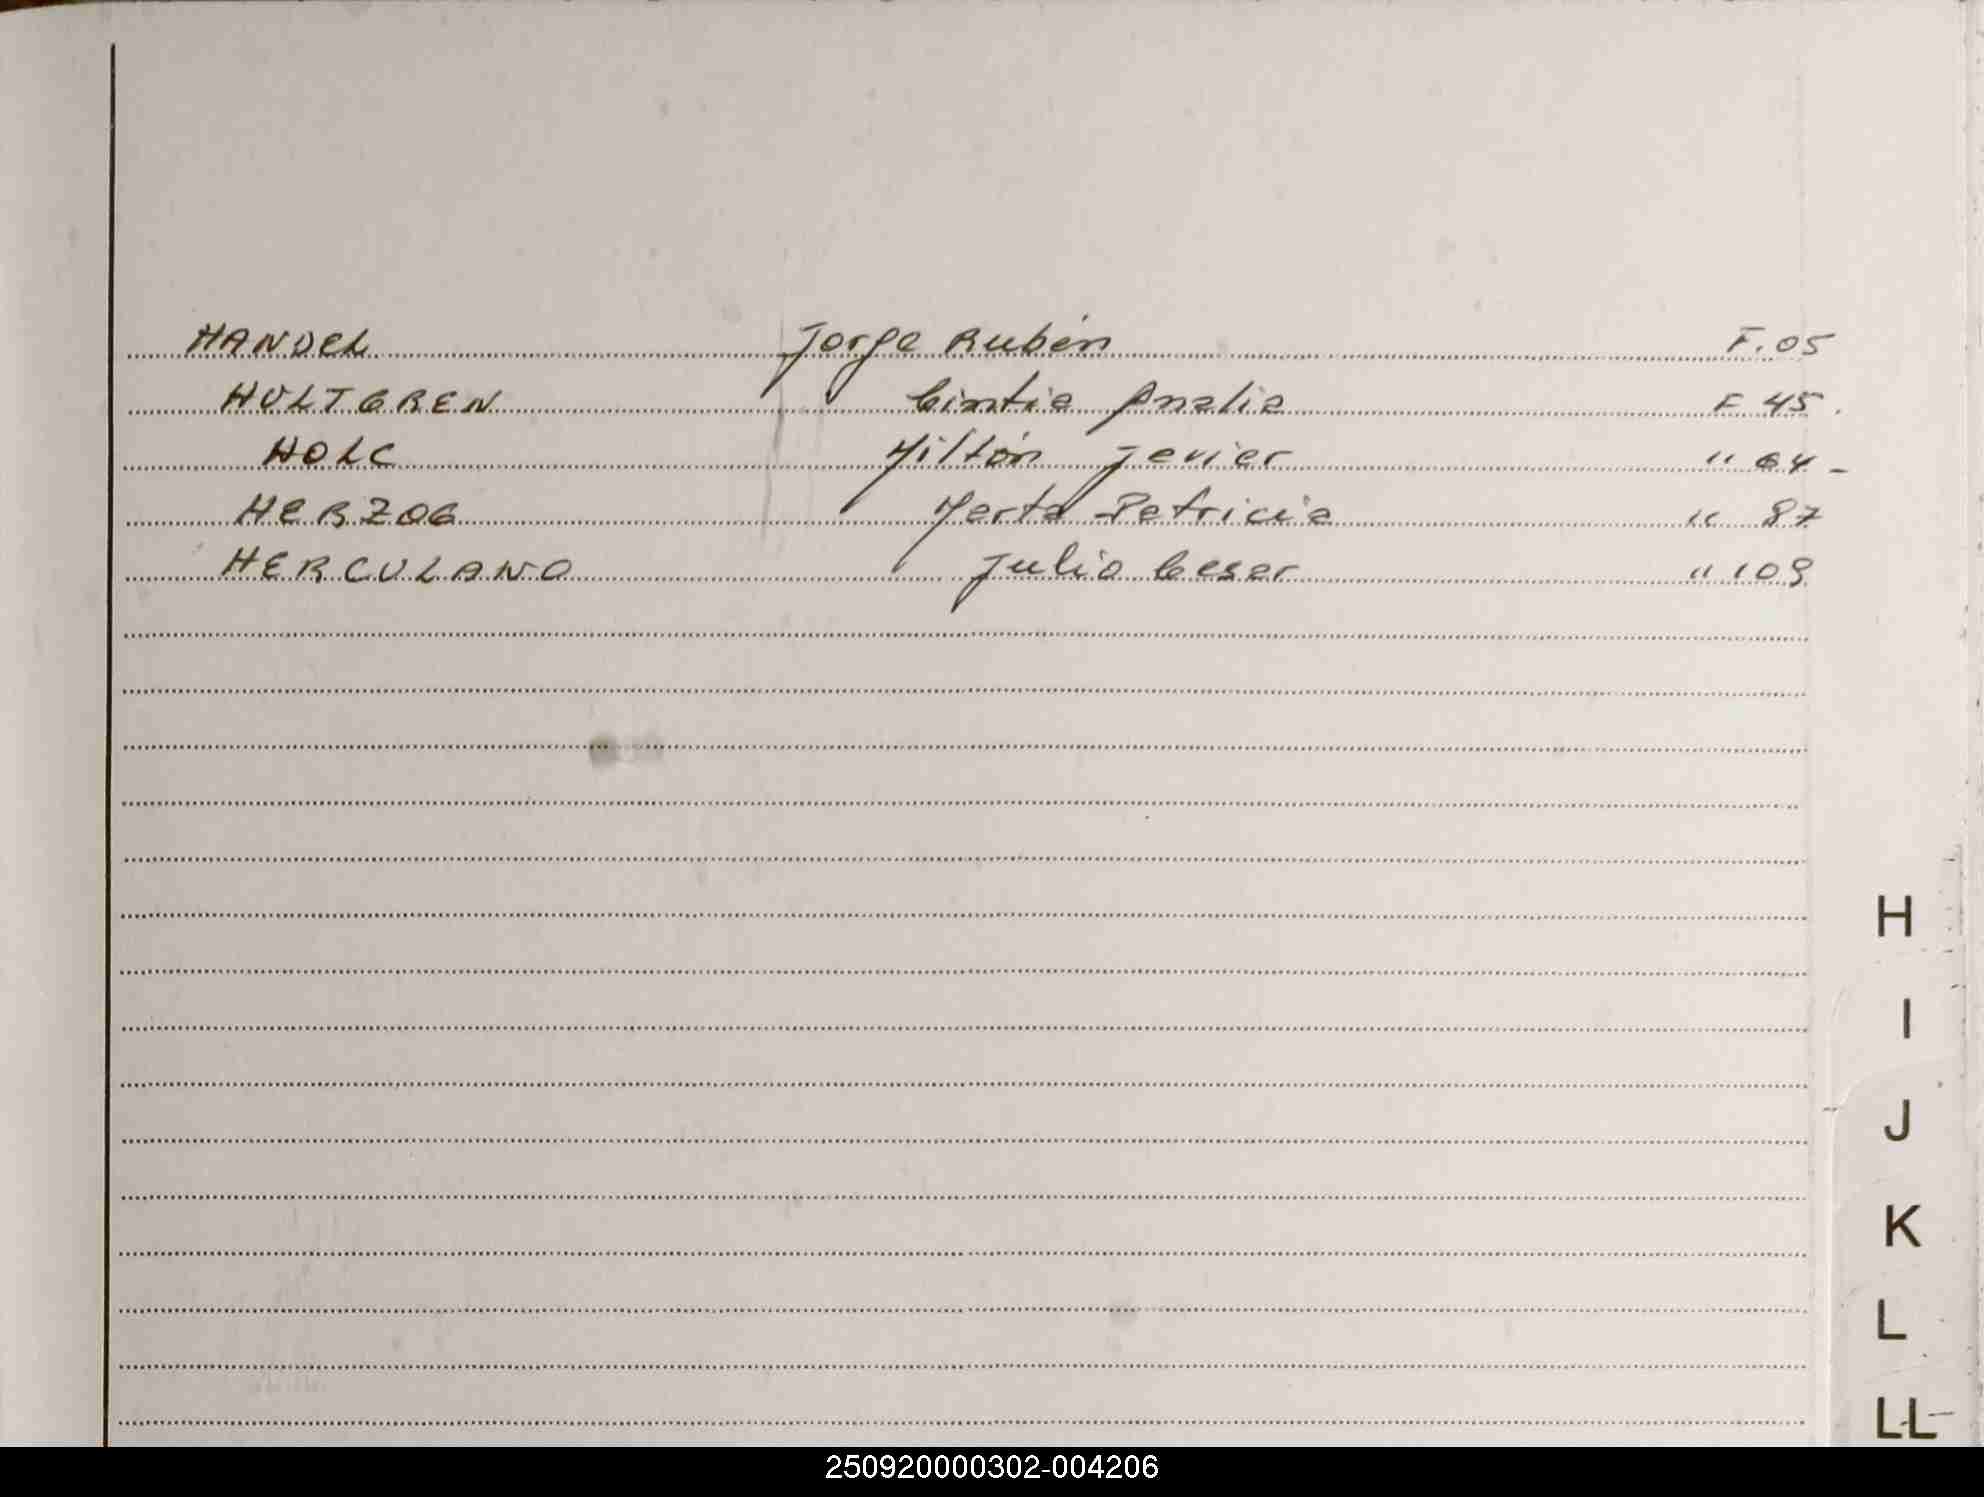 HANDEL Jorge Rubén F. 05
HULTGREN Cintia Analia F 45.
HOLC Miltón Javier " 64 -
HERZOG Marta Patricia " 87
HERCULANO Julio Cesar " 109
H
I
J
K
L
LL
250920000302-004206